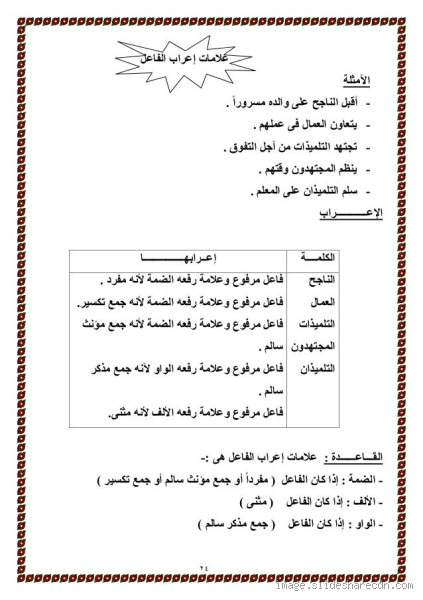 علامات إعراب الفاعل
الأمثلة
- أقبل الناجح على والده مسروراً .
- يتعاون العمال فى عملهم .
- تجتهد التلميذات من أجل التفوق .
- ينظم المجتهدون وقتهم .
- سلم التلميذان على المعلم .
الإعـــــــراب
الكلمــة إعـرابهـــــــــا
الناجح فاعل مرفوع وعلامة رفعه الضمة لأنه مفرد .
العمال فاعل مرفوع وعلامة رفعه الضمة لأنه جمع تكسير.
التلميذات فاعل مرفوع وعلامة رفعه الضمة لأنه جمع مؤنث
المجتهدون سالم .
التلميذان فاعل مرفوع وعلامة رفعه الواو لأنه جمع مذكر
سالم .
فاعل مرفوع وعلامة رفعه الألف لأنه مثنى.
القـــاعـــدة : علامات إعراب الفاعل هى :-
- الضمة : إذا كان الفاعل ( مفرداً أو جمع مؤنث سالم أو جمع تكسير )
- الألف : إذا كان الفاعل ( مثنى )
- الواو : إذا كان الفاعل ( جمع مذكر سالم )
٢٤
image.slidesharecdn.com